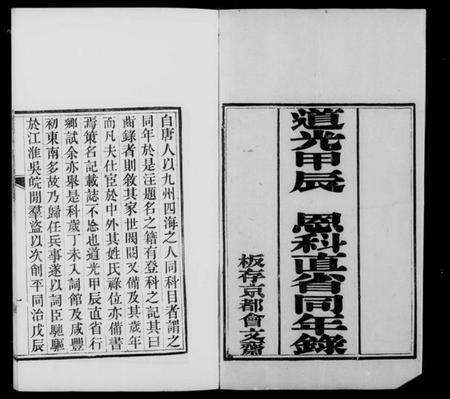 道光甲辰 恩科直省同年錄
板存京都會文齋
自唐人以九州四海之人同科目者謂之
同年於是汪題名之籍有登科之記其曰
齒錄者則敘其家世閥閱又備及其歲年
而凡夫仕宦於中外其姓氏祿位亦備書
焉策名記載誌不忘也道光甲辰直省行
鄉試余亦舉是科歲丁未入詞館及咸豐
初東南多故乃歸任兵事遂以詞臣驅驅
於江淮吳皖閒羣盜以次削平同治戊辰